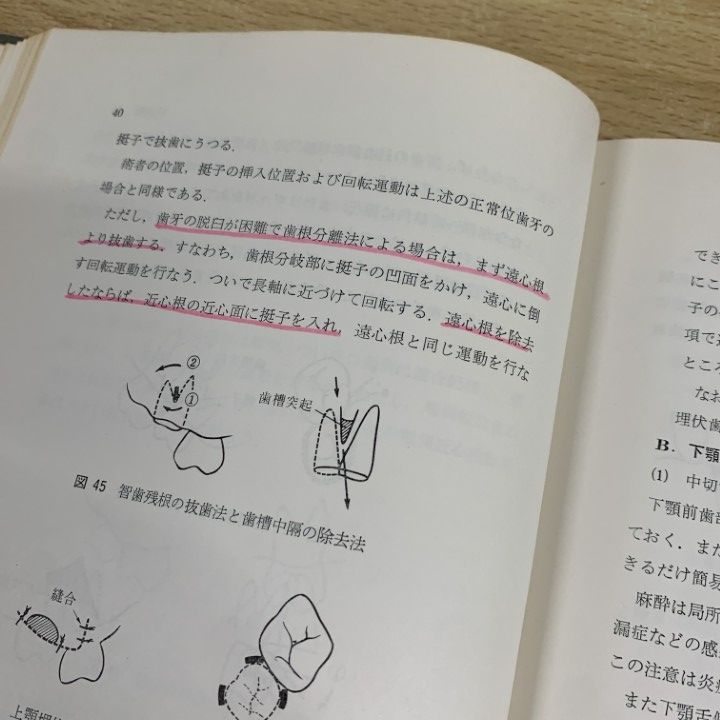 40
挺子で抜歯にうつる.
術者の位置,挺子の挿入位置および回転運動は上述の正常位歯牙の
場合と同様である.
ただし,歯牙の脱臼が困難で歯根分離法による場合は,まず遠心根
より抜歯する.すなわち,歯根分岐部に挺子の凹面をかけ,遠心に倒
す回転運動を行なう.ついで長軸に近づけて回転する.遠心根を除去
したならば,近心根の近心面に挺子を入れ,遠心根と同じ運動を行な
②
①
歯槽突起
図 45 智歯残根の抜歯法と歯槽中隔の除去法
縫合
上顎埋
でき
にこ
子の
項で
ところ
なお
埋伏歯
B. 下顎
(1) 中切
下顎前歯部
ておく.また
きるだけ簡易
麻酔は局所
漏症などの感
この注意は炎
また下顎舌